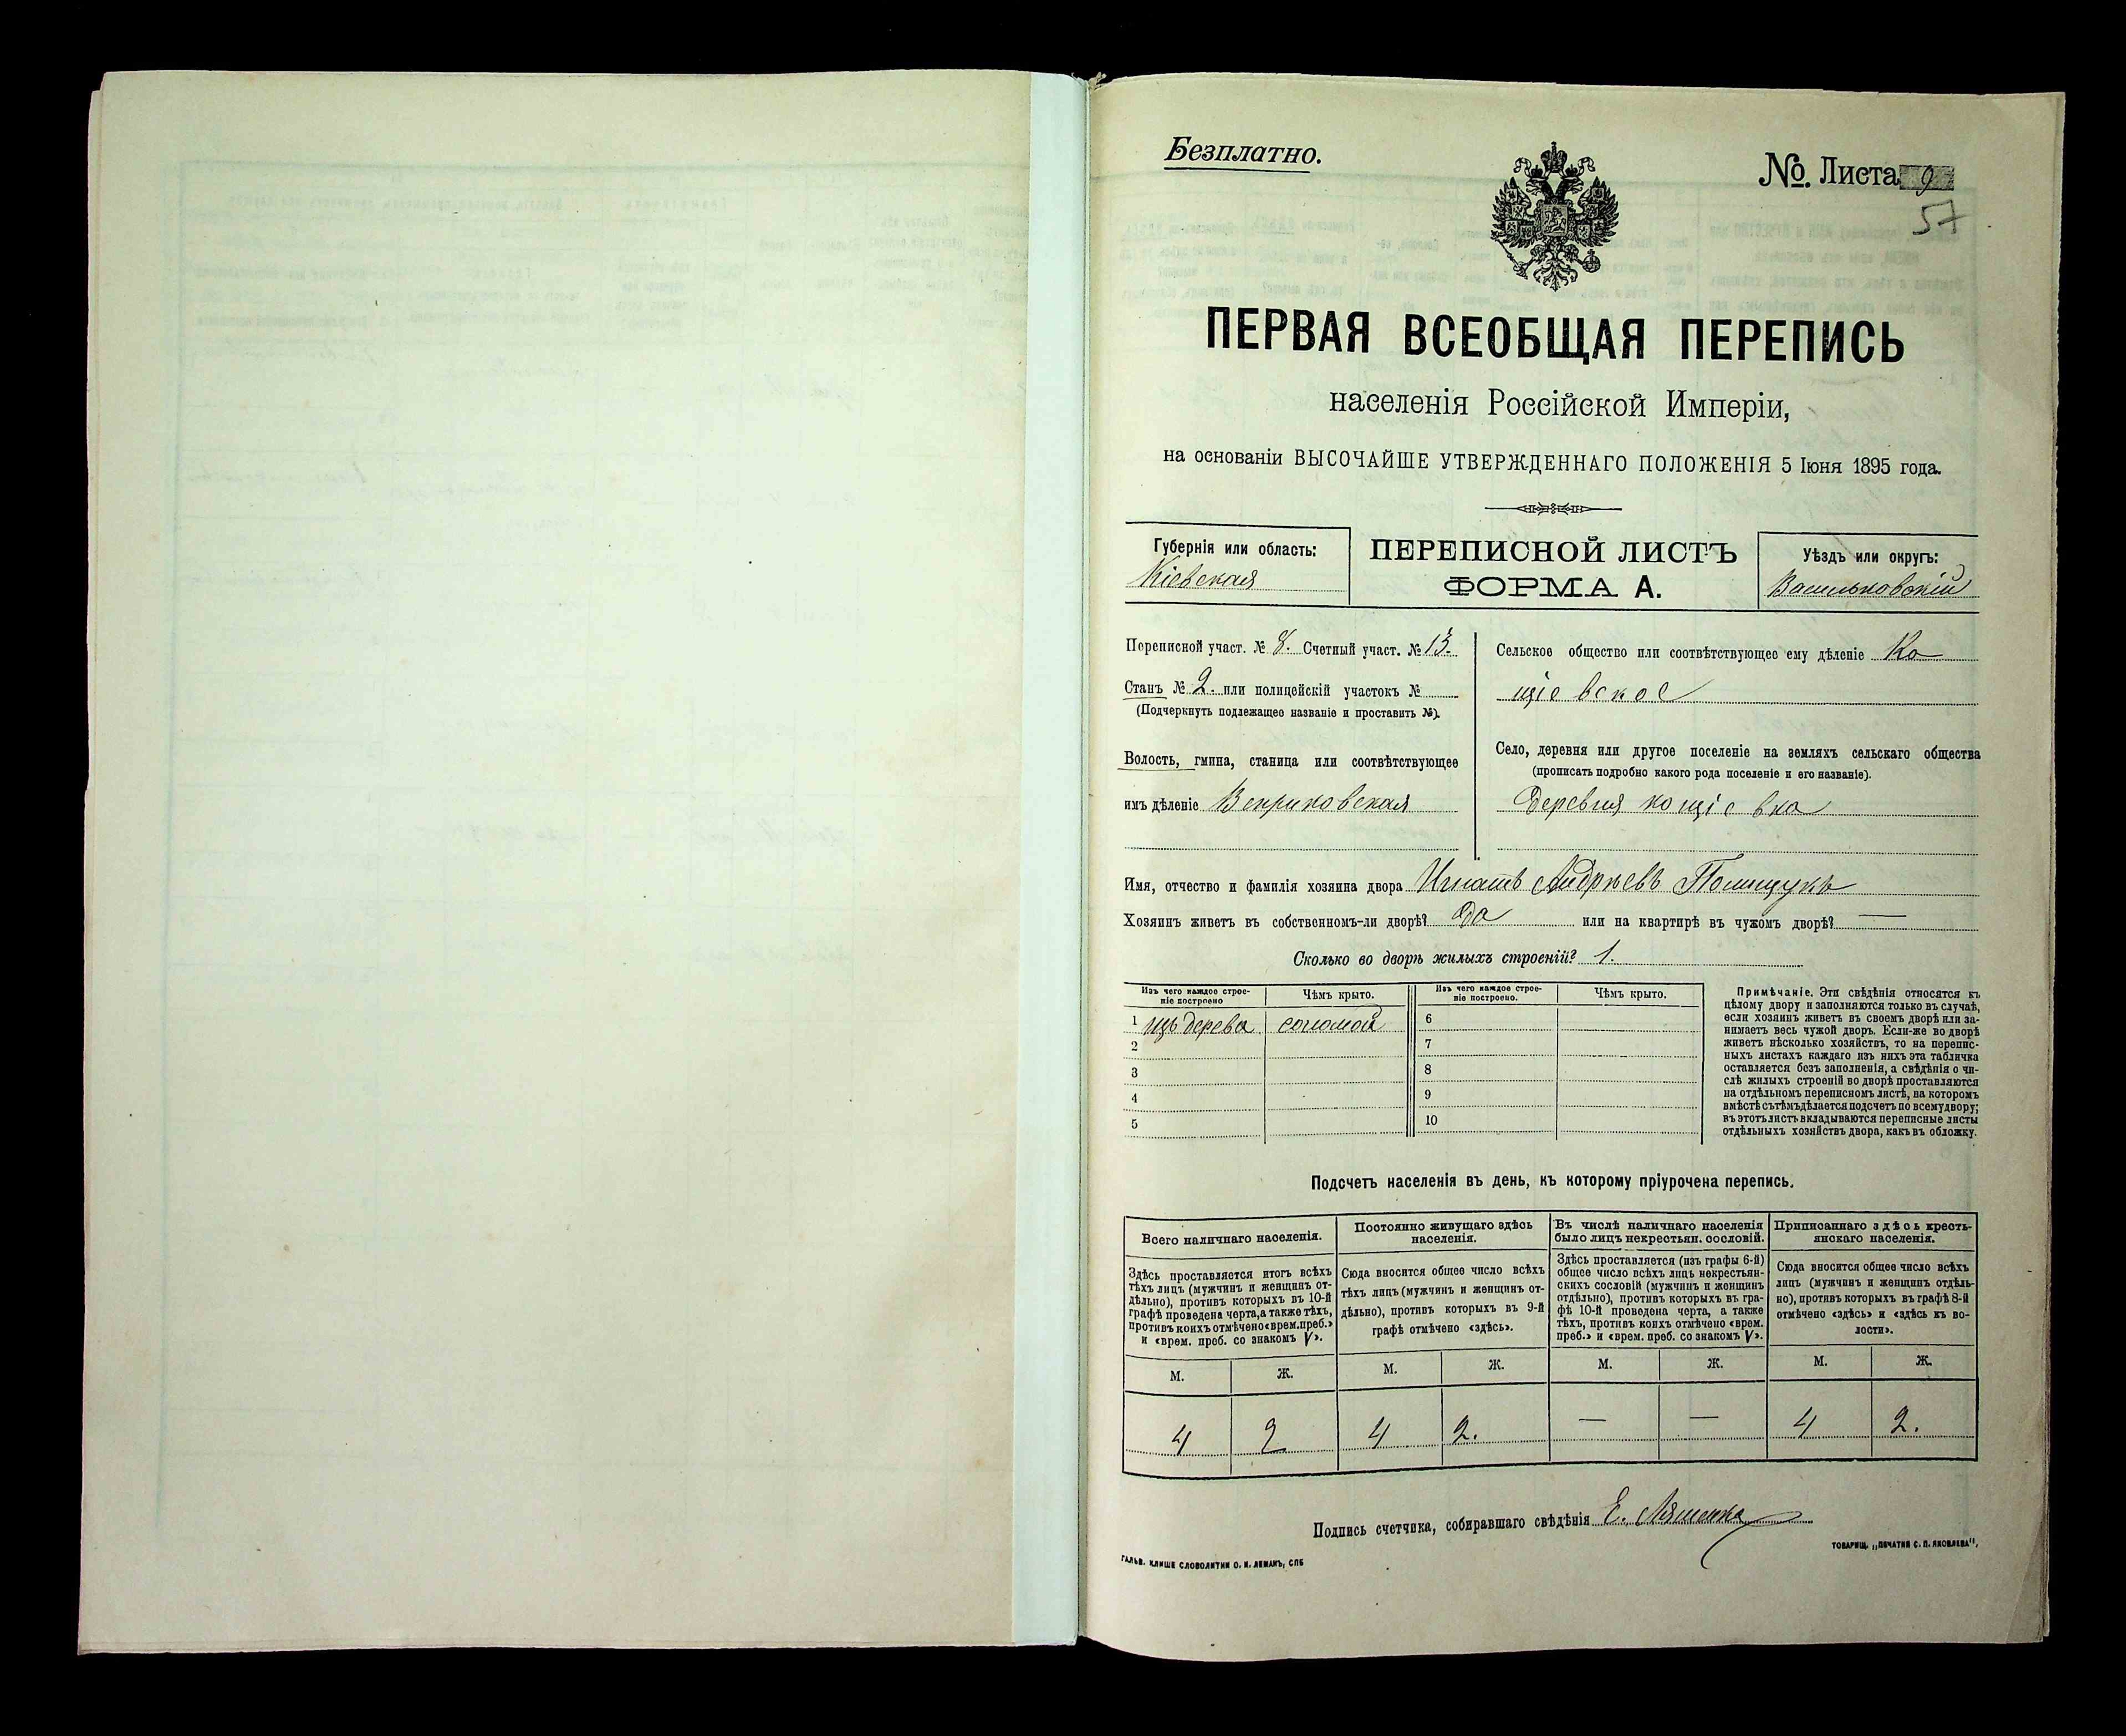 Безплатно.
№. Листа 9
57
ПЕРВАЯ ВСЕОБЩАЯ ПЕРЕПИСЬ
населенія Россійской Имперіи,
на основаніи ВЫСОЧАЙШЕ УТВЕРЖДЕННАГО ПОЛОЖЕНІЯ 5 Іюня 1895 года.
Губернія или область:
Кіевская
ПЕРЕПИСНОЙ ЛИСТЪ
ФОРМА А.
Уѣздъ или округъ:
Васильковскій
Переписной участ. № 8. Счетный участ. № 13.
Станъ № 2. или полицейскій участокъ №
(Подчеркнуть подлежащее названіе и проставить №).
Волость, гмина, станица или соотвѣтствующее
имъ дѣленіе Веприковская
Сельское общество или соотвѣтствующее ему дѣленіе Ко
щіевское
Село, деревня или другое поселеніе на земляхъ сельскаго общества
(прописать подробно какого рода поселеніе и его названіе).
Деревня кощіевка
Имя, отчество и фамилія хозяина двора Игнатъ Андрѣевъ Полищукъ
Хозяинъ живетъ въ собственномъ-ли дворѣ? Да или на квартирѣ въ чужомъ дворѣ? —
Сколько во дворѣ жилыхъ строеній? 1.
Изъ чего каждое строе-
ніе построено
Чѣмъ крыто.
Изъ чего каждое строе-
ніе построено.
Чѣмъ крыто.
1 изъ дерева соломой 6
2 7
3 8
4 9
5 10
Примѣчаніе. Эти свѣдѣнія относятся къ
цѣлому двору и заполняются только въ случаѣ,
если хозяинъ живетъ въ своемъ дворѣ или за-
нимаетъ весь чужой дворъ. Если-же во дворѣ
живетъ нѣсколько хозяйствъ, то на перепис-
ныхъ листахъ каждаго изъ нихъ эта табличка
оставляется безъ заполненія, а свѣдѣнія о чи-
слѣ жилыхъ строеній во дворѣ проставляются
на отдѣльномъ переписномъ листѣ, на которомъ
вмѣстѣ съ тѣмъ дѣлается подсчетъ по всему двору;
въ этотъ листъ вкладываются переписные листы
отдѣльныхъ хозяйствъ двора, какъ въ обложку.
Подсчетъ населенія въ день, къ которому пріурочена перепись.
Всего наличнаго населенія.
Здѣсь проставляется итогъ всѣхъ
тѣхъ лицъ (мужчинъ и женщинъ от-
дѣльно), противъ которыхъ въ 10-й
графѣ проведена черта, а также тѣхъ,
противъ коихъ отмѣчено «врем. преб.»
и «врем. преб. со знакомъ V».
Постоянно живущаго здѣсь
населенія.
Сюда вносится общее число всѣхъ
тѣхъ лицъ (мужчинъ и женщинъ от-
дѣльно), противъ которыхъ въ 9-й
графѣ отмѣчено «здѣсь».
Въ числѣ наличнаго населенія
было лицъ некрестьян. сословій.
Здѣсь проставляется (изъ графы 6-й)
общее число всѣхъ лицъ некрестьян-
скихъ сословій (мужчинъ и женщинъ
отдѣльно), противъ которыхъ въ гра-
фѣ 10-й проведена черта, а также
тѣхъ, противъ коихъ отмѣчено «врем.
преб.» и «врем. преб. со знакомъ V».
Приписаннаго здѣсь кресть-
янскаго населенія.
Сюда вносится общее число всѣхъ
лицъ (мужчинъ и женщинъ отдѣль-
но), противъ которыхъ въ графѣ 8-й
отмѣчено «здѣсь» и «здѣсь къ во-
лости».
М. Ж. М. Ж. М. Ж. М. Ж.
4 2 4 2. — — 4 2.
Подпись счетчика, собиравшаго свѣдѣнія Е. Ляшенко
ГАЛЬВ. КЛИШЕ СЛОВОЛИТНИ О. И. ЛЕМАНЪ, СПБ
ТОВАРИЩ. „ПЕЧАТНЯ С. П. ЯКОВЛЕВА",